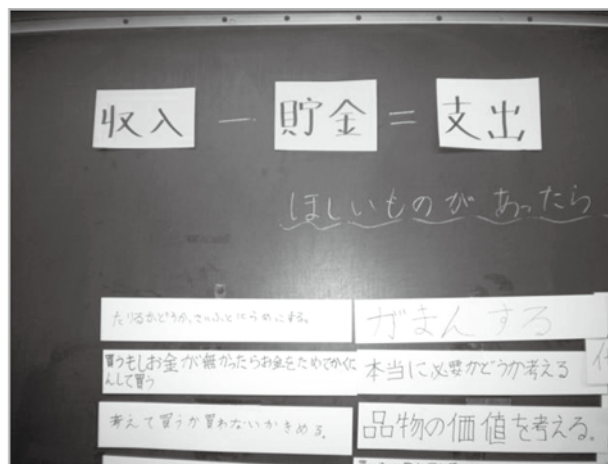 収入 － 貯金 ＝ 支出
ほしいものがあったら
たりるかどうか、さいふと
がまんする
買うもしお金が無かったらお金をためてかくに
んして買う
本当に必要かどうか考える
考えて買うか買わないかきめる。
品物の価値を考える。